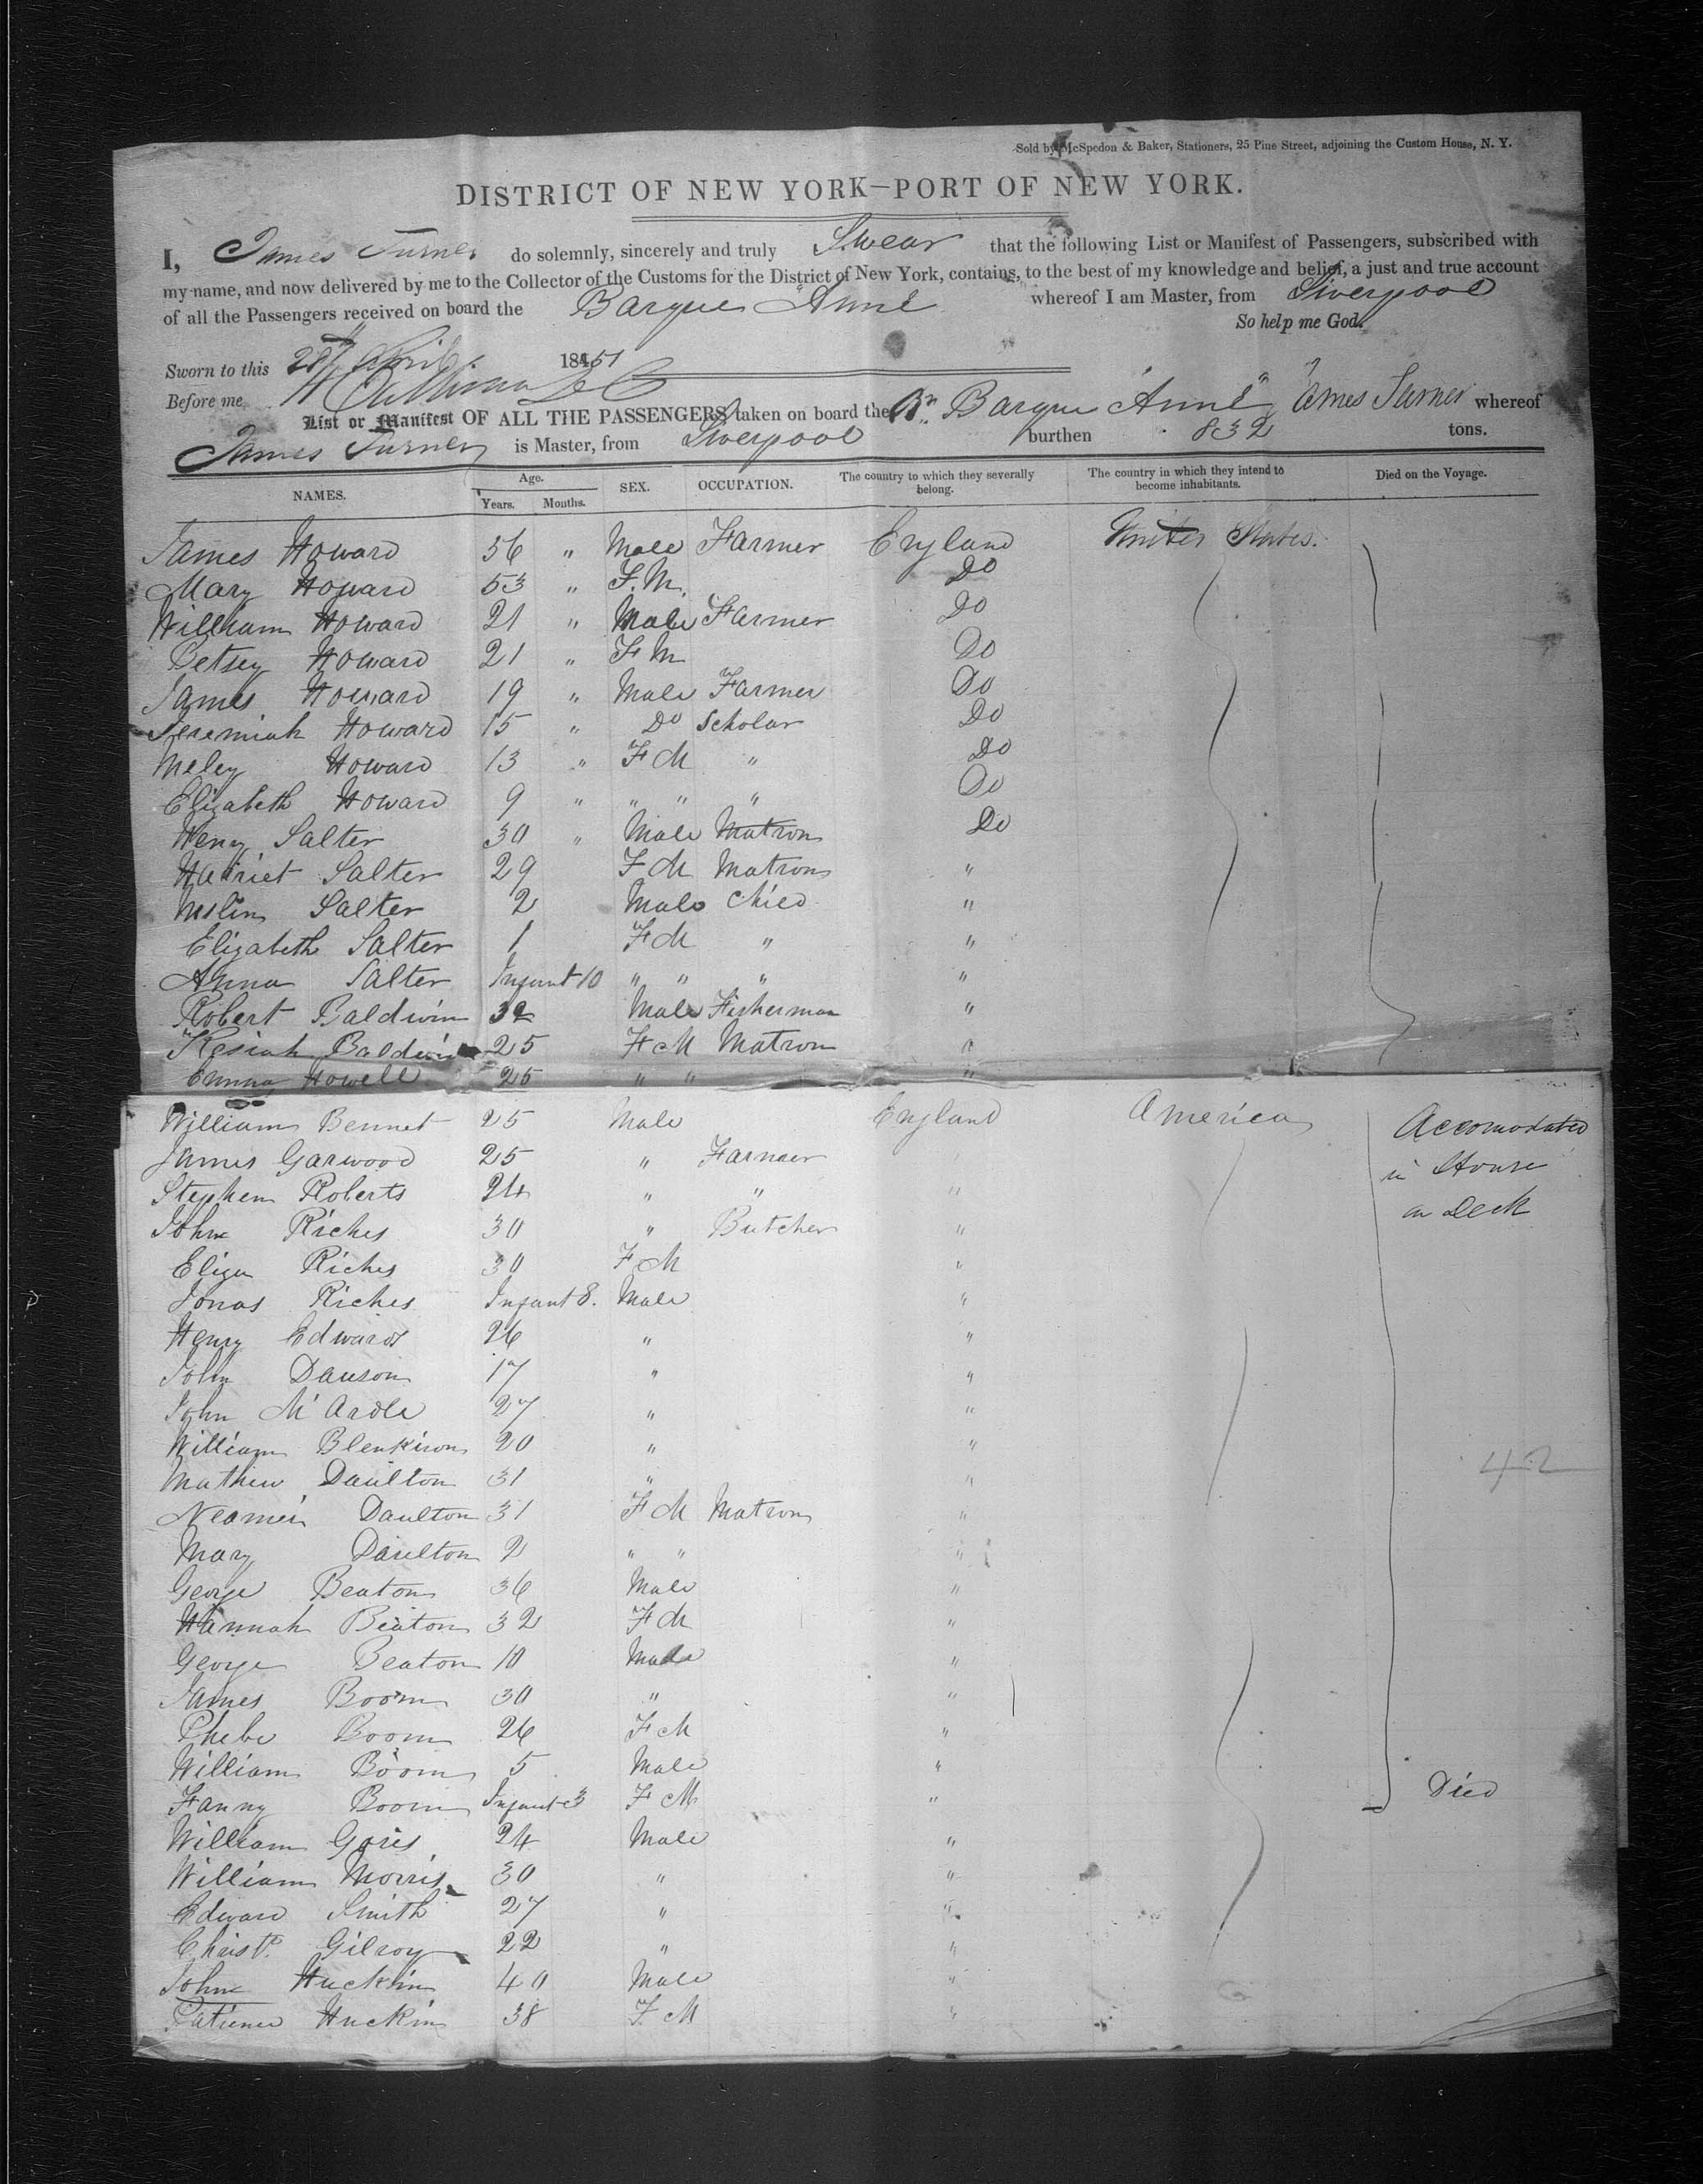 Sold by McSpedon & Baker, Stationers, 25 Pine Street, adjoining the Custom House, N. Y.
DISTRICT OF NEW YORK—PORT OF NEW YORK.
I, James Turner do solemnly, sincerely and truly Swear that the following List or Manifest of Passengers, subscribed with
my name, and now delivered by me to the Collector of the Customs for the District of New York, contains, to the best of my knowledge and belief, a just and true account
of all the Passengers received on board the Barque Anne whereof I am Master, from Liverpool
So help me God.
Sworn to this 28 April 1851
Before me
List or Manifest OF ALL THE PASSENGERS taken on board the Br. Barque "Anne" James Turner whereof
James Turner is Master, from Liverpool burthen 832 tons.
NAMES. Age. Years. Months. SEX. OCCUPATION. The country to which they severally belong. The country in which they intend to become inhabitants. Died on the Voyage.
James Howard 56 " Male Farmer England United States.
Mary Howard 53 " F.M. Do
William Howard 21 " Male Farmer Do
Betsey Howard 21 " F M Do
James Howard 19 " Male Farmer Do
Jeremiah Howard 15 " Do Scholar Do
Meley Howard 13 " F M " Do
Elizabeth Howard 9 " " " " Do
Heny Salter 30 " Male Matron Do
Harriet Salter 29 F M Matron "
Salter 2 Male Child "
Elizabeth Salter 1 F M " "
Anna Salter Infant 10 " " " "
Robert Baldwin 32 Male Fisherman "
Kesiah Baldwin 25 F M Matron "
Emma Howell 25 " " "
William Bennet 25 Male England America Accomodated
James Garwood 25 " Farmer " in House
Stephen Roberts 24 " " " on Deck
John Riches 30 " Butcher "
Eliza Riches 30 F M "
Jonas Riches Infant 8. Male "
Henry Edwards 26 " "
John Dawson 17 " "
John M'Ardle 27 " "
William Blenkiron 20 " "
Mathew Daulton 31 " " 42
Neomei Daulton 31 F M Matron "
Mary Daulton 2 " " "
George Beaton 36 Male "
Hannah Beaton 32 F M "
George Beaton 10 Male "
James Boom 30 " "
Phebe Boom 26 F M "
William Boom 5 Male "
Fanny Boom Infant 3 F M " Died
William Goris 24 Male "
William Morris 30 " "
Edward Smith 27 " "
Christr. Gilroy 22 " "
John Huckin 40 Male "
Patience Huckin 38 F. M "